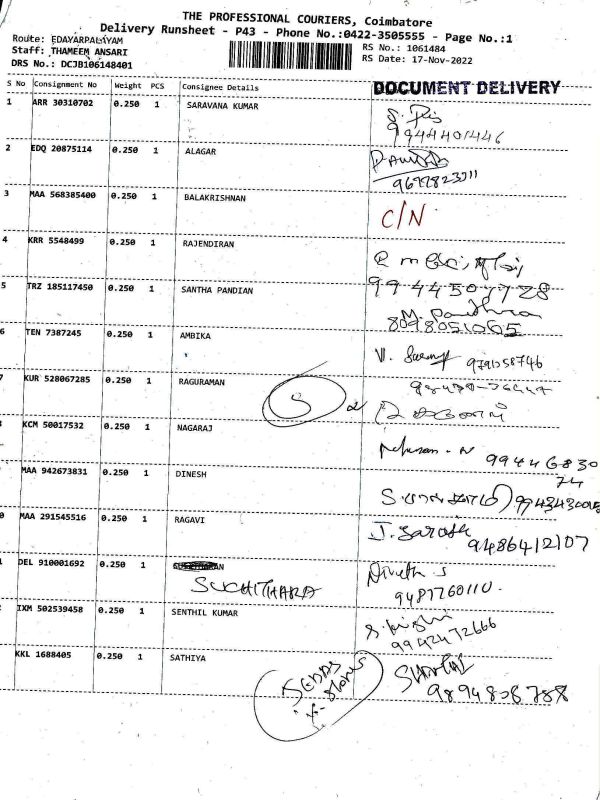 THE PROFESSIONAL COURIERS, Coimbatore
Delivery Runsheet - P43 - Phone No.:0422-3505555 - Page No.:1
Route: EDAYARPALAYAM
Staff: THAMEEM ANSARI
DRS No.: DCJB106148401
RS No.: 1061484
RS Date: 17-Nov-2022
S No Consignment No Weight PCS Consignee Details DOCUMENT DELIVERY
1 ARR 30310702 0.250 1 SARAVANA KUMAR
9944401446
2 EDQ 20875114 0.250 1 ALAGAR
3 MAA 568385400 0.250 1 BALAKRISHNAN C/N
4 KRR 5548499 0.250 1 RAJENDIRAN
9944507728
5 TRZ 185117450 0.250 1 SANTHA PANDIAN
8098051065
6 TEN 7387245 0.250 1 AMBIKA
7 KUR 528067285 0.250 1 RAGURAMAN
KCM 50017532 0.250 1 NAGARAJ
99446830
74
MAA 942673831 0.250 1 DINESH
0 MAA 291545516 0.250 1 RAGAVI J. Sarath
9486412107
DEL 910001692 0.250 1
SUCHITHARA
9487760110.
IXM 502539458 0.250 1 SENTHIL KUMAR
9942472666
KKL 1688405 0.250 1 SATHIYA
9894808788